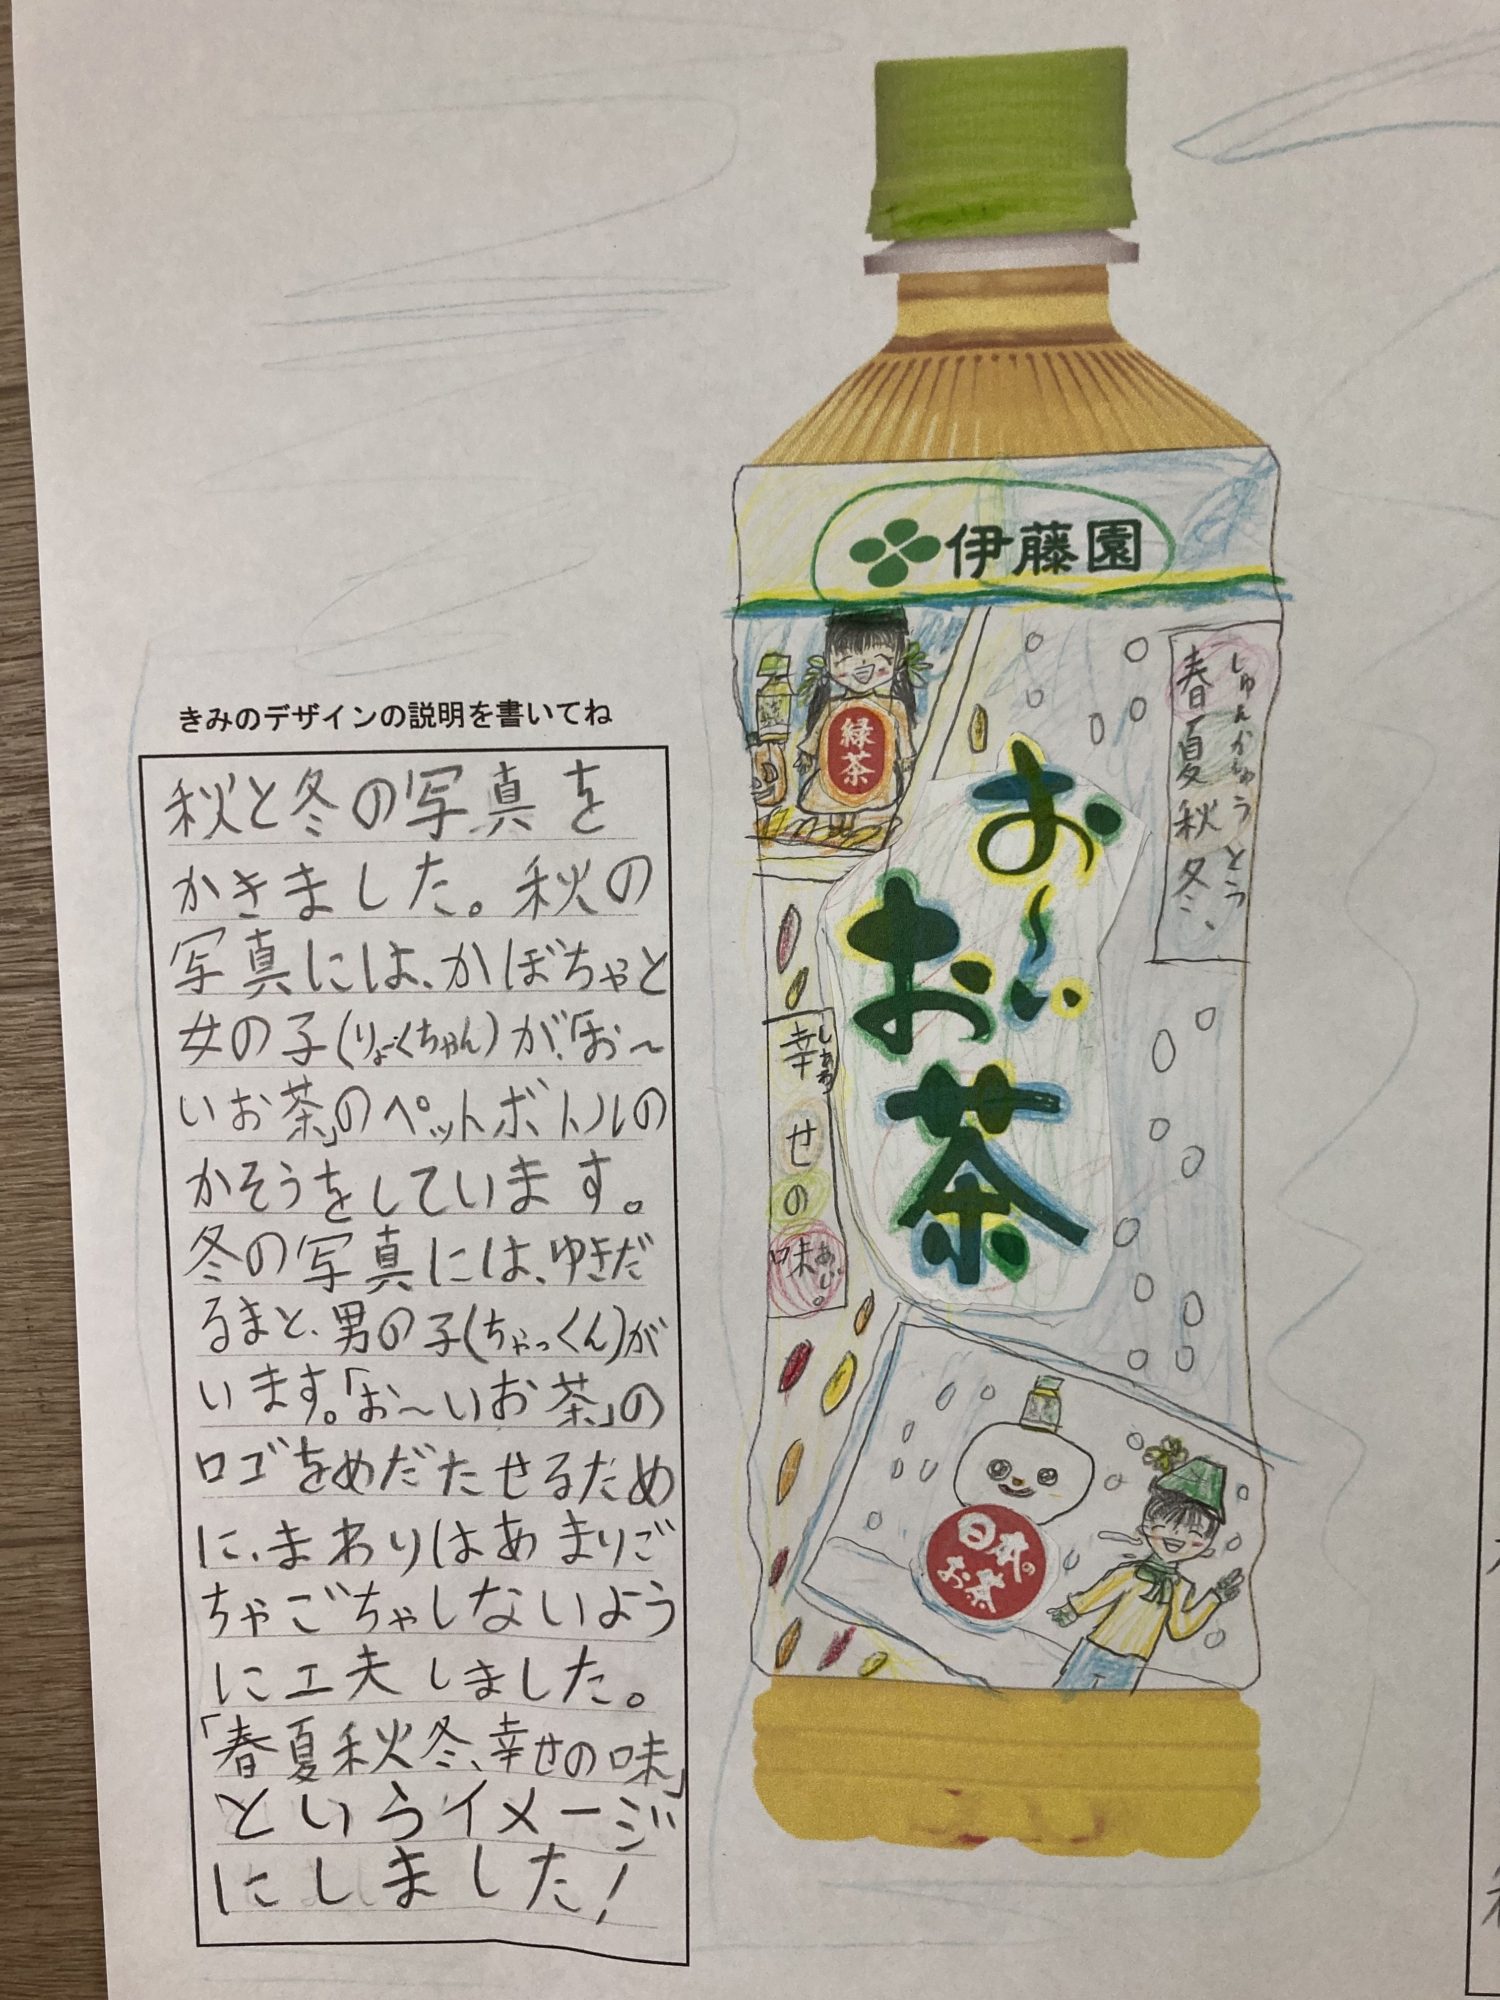 伊藤園
緑茶
春夏秋冬、
しゅんかしゅうとう
お～い
お茶
幸せの味。
しあわ
あじ
日本の
お茶
きみのデザインの説明を書いてね
秋と冬の写真を
かきました。秋の
写真には、かぼちゃと
女の子(りょくちゃん)が、「お～
いお茶」のペットボトルの
かそうをしています。
冬の写真には、ゆきだ
るまと、男の子(ちゃっくん)が
います。「お～いお茶」の
ロゴをめだたせるため
に、まわりはあまりご
ちゃごちゃしないよう
に工夫しました。
「春夏秋冬、幸せの味」
というイメージ
にしました!